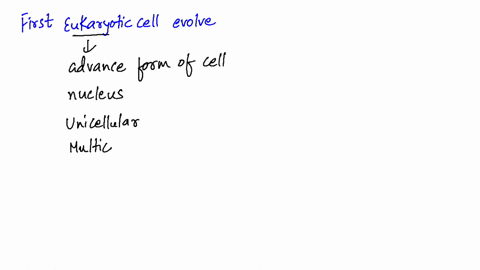 First Eukaryotic cell evolve
advance form of cell
nucleus
Unicellular
Multic